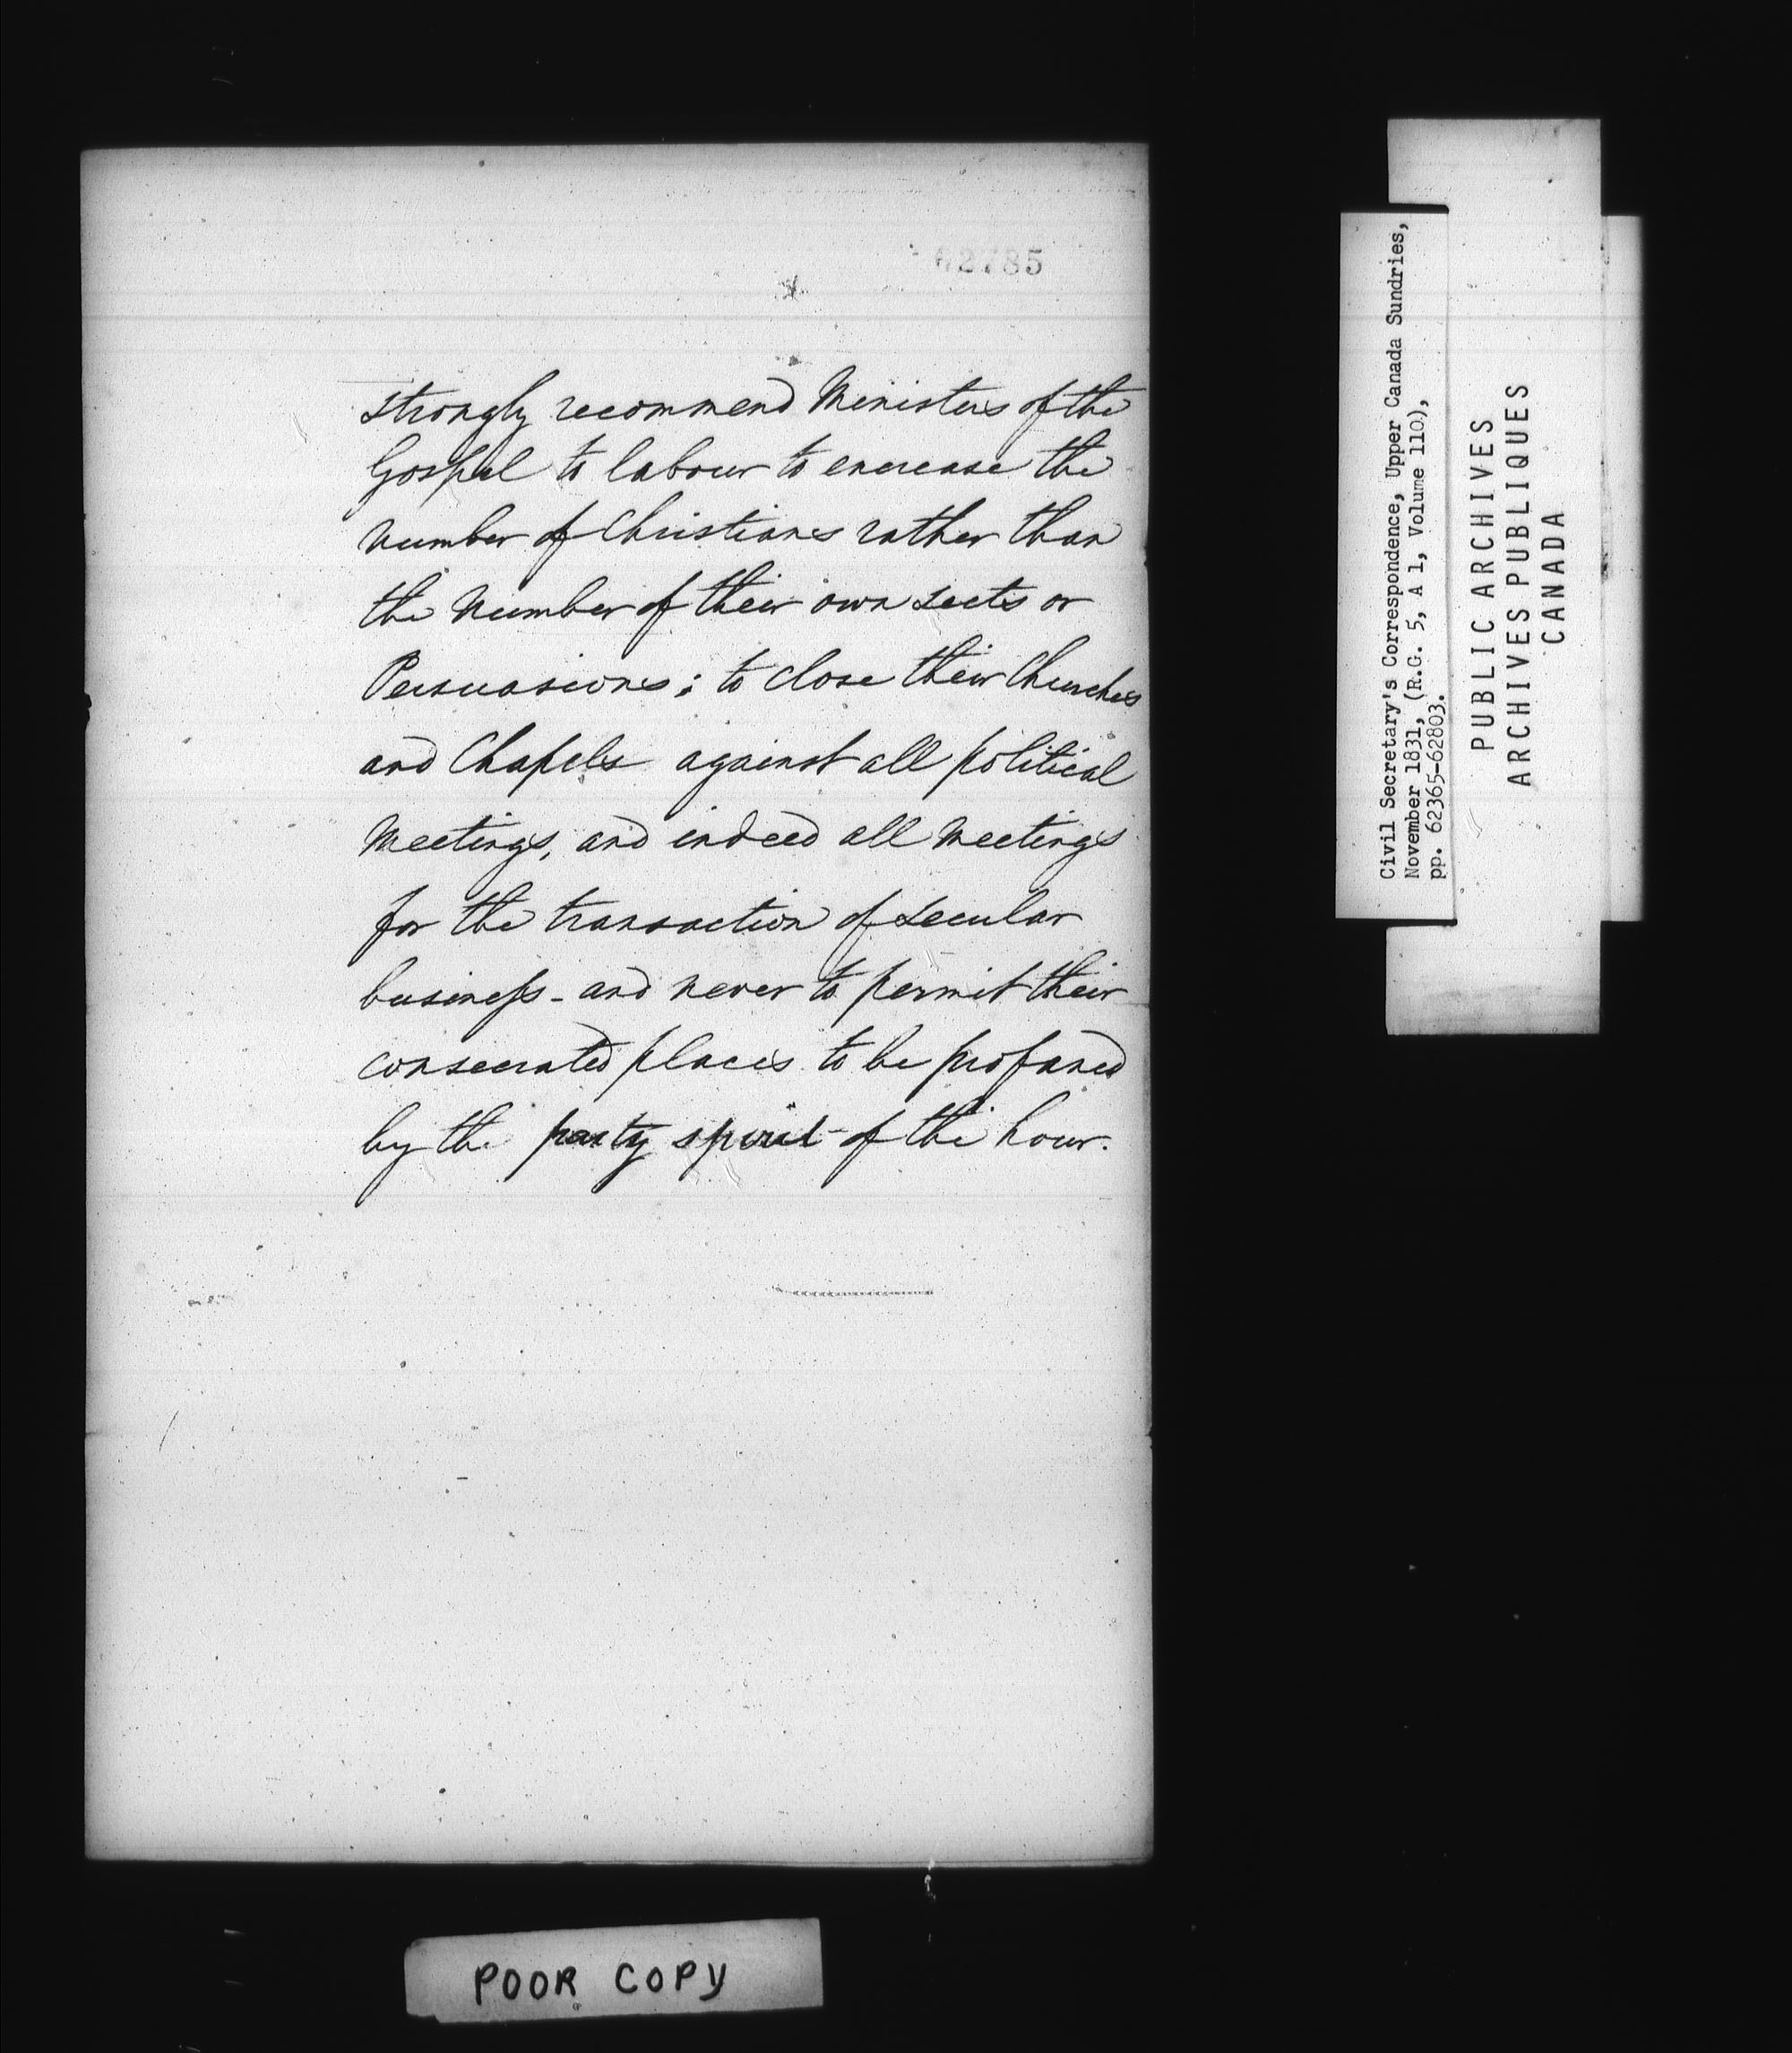 62785
strongly recommend Ministers of the
Gospel to labour to encrease the
number of Christians rather than
the number of their own sects or
Persuasions; to close their Churches
and Chapels against all political
Meetings, and indeed all Meetings
for the transaction of secular
business - and never to permit their
consecrated places to be profaned
by the party spirit of the hour.
POOR COPY
Civil Secretary's Correspondence, Upper Canada Sundries,
November 1831, (R.G. 5, A 1, Volume 110),
pp. 62365-62803.
PUBLIC ARCHIVES
ARCHIVES PUBLIQUES
CANADA